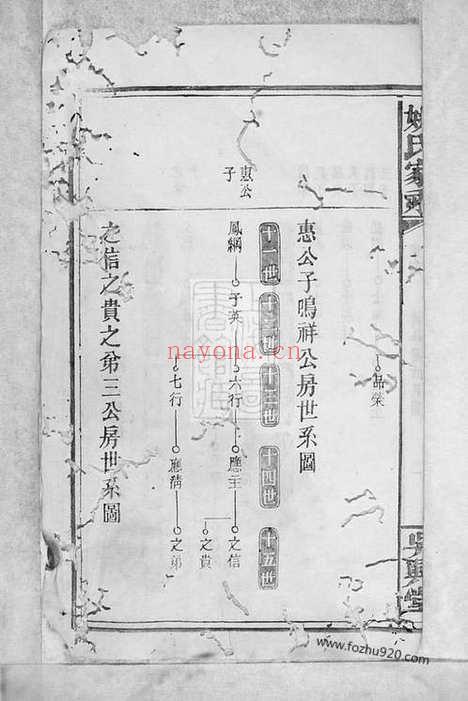 姚氏家乘
吳興堂
品榮
惠公子鳴祥公房世系圖
十一世 十二世 十三世 十四世 十五世
惠公
子
鳳綱 子英 六行 應主 之信
之貴
七行 應清 之弟
之信之貴之弟三公房世系圖
nayona.cn
www.fozhu920.com